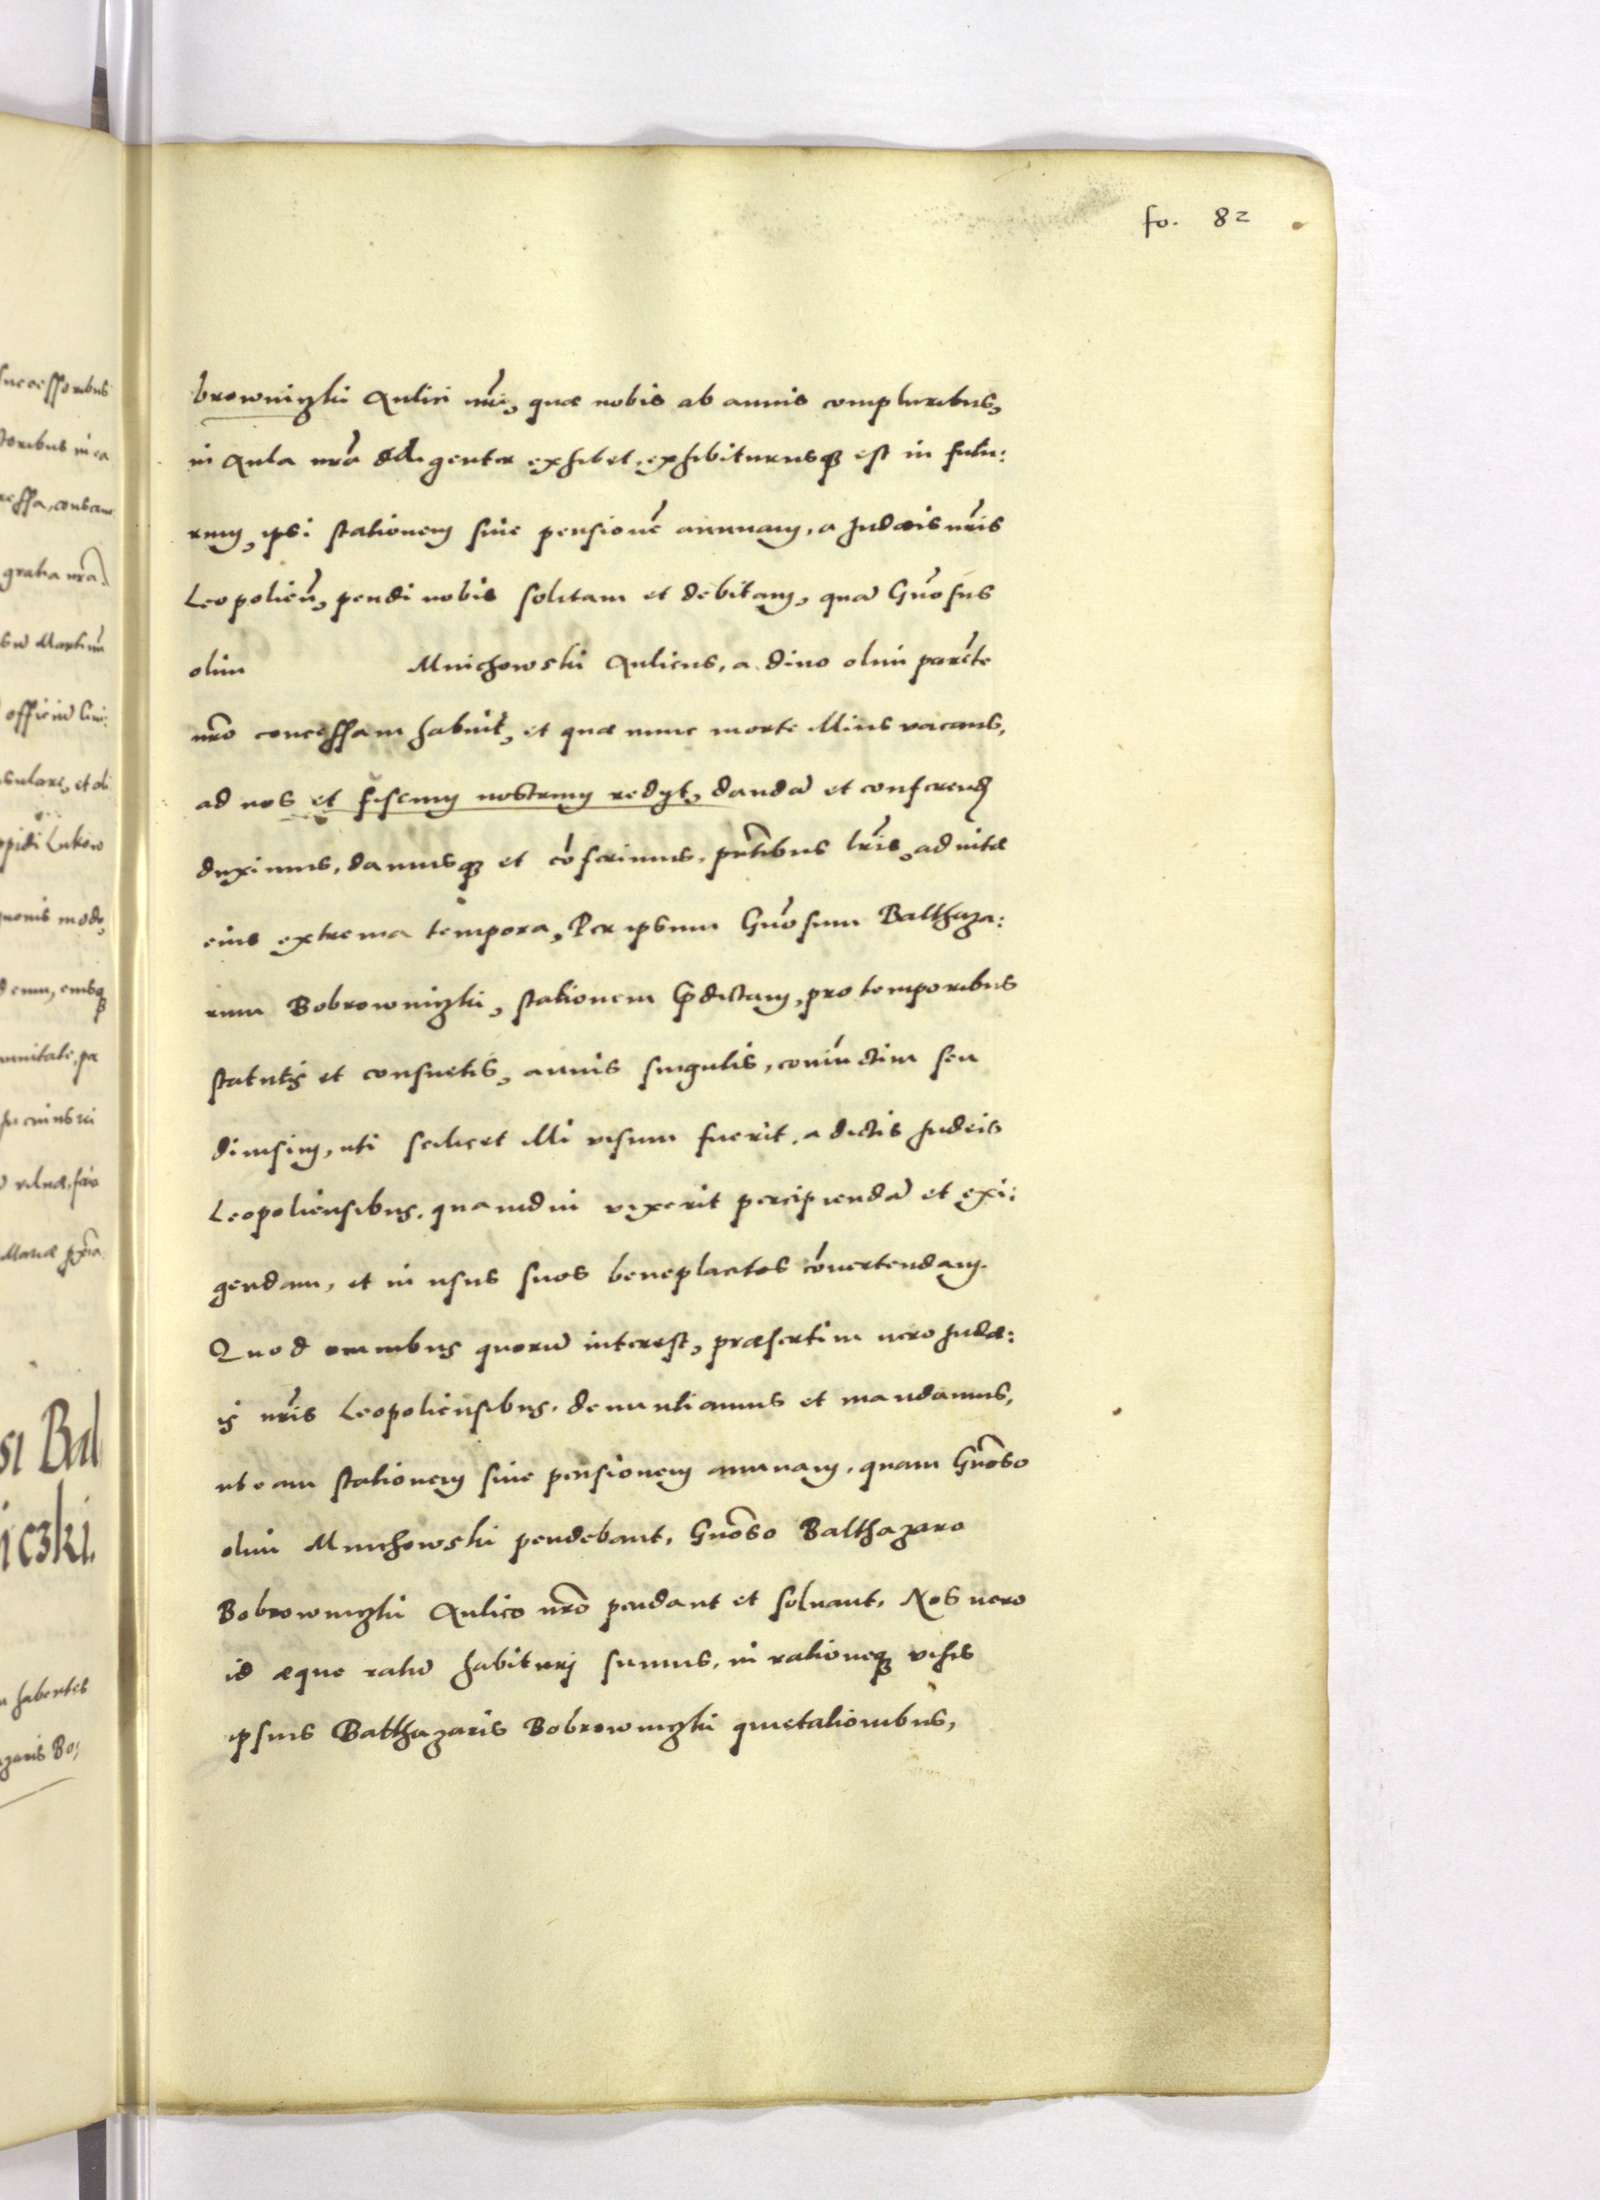 fo. 82
browniczki Aulici nri, quæ nobis ab annis compluribus,
in Aula nra diligenter exhibet, exhibiturusq est in futu:
rum, ipsi stationem siue pensione annuam, a Judæis nris
Leopolien, pendi nobis solitam et debitam, qua Gnosus
olim Mnichowski Aulicus, a diuo olim parete
nro concessam habuit, et quæ nunc morte illius vacans,
ad nos et fiscum nostrum redyt, danda et conferend
duximus, damusq et coferimus, pntibus lris, ad vitæ
eius extrema tempora, Per ipsum Gnosum Balthaza:
rum Bobrowniczki, stationem pdictam, pro temporibus
statutis et consuetis, annis singulis, coniuctim seu
diuisim, uti scilicet illi visum fuerit, a dictis Judeis
Leopoliensibus, quamdiu vixerit percipienda et exi:
gendam, et in usus suos beneplacitos couertendam.
Quod omnibus quoru interest, præsertim uero Judæ:
is nris Leopoliensibus, denuntiamus et mandamus,
ut eam stationem siue pensionem annuam, quam Gnoso
olim Mnichowski pendebant, Gnoso Balthazaro
Bobrowniczki Aulico nro pendant et soluant, Nos uero
id æque ratu habituri sumus, in rationeq visis
ipsius Balthazaris Bobrowniczki quietationibus,
successoribus
gratia nra
Martinu
oppidi Lukow
si Bal
iczki.
habentes
zaris Bo: